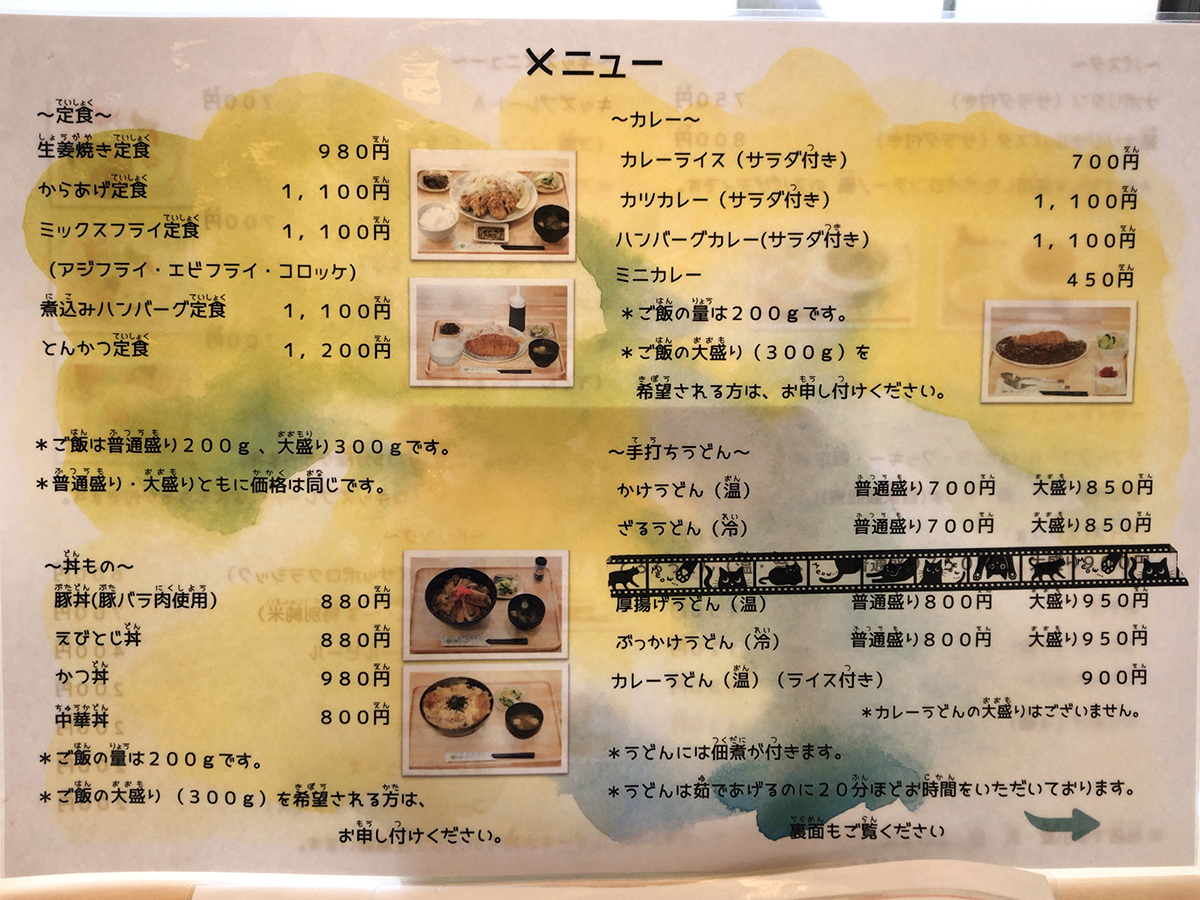 メニュー
～定食～
生姜焼き定食 980円
からあげ定食 1,100円
ミックスフライ定食 1,100円
(アジフライ・エビフライ・コロッケ)
煮込みハンバーグ定食 1,100円
とんかつ定食 1,200円
＊ご飯は普通盛り200g、大盛り300gです。
＊普通盛り・大盛りともに価格は同じです。
～丼もの～
豚丼(豚バラ肉使用) 880円
えびとじ丼 880円
かつ丼 980円
中華丼 800円
＊ご飯の量は200gです。
＊ご飯の大盛り（300g）を希望される方は、
お申し付けください。
～カレー～
カレーライス（サラダ付き） 700円
カツカレー（サラダ付き） 1,100円
ハンバーグカレー(サラダ付き) 1,100円
ミニカレー 450円
＊ご飯の量は200gです。
＊ご飯の大盛り（300g）を
希望される方は、お申し付けください。
～手打ちうどん～
かけうどん（温） 普通盛り700円 大盛り850円
ざるうどん（冷） 普通盛り700円 大盛り850円
厚揚げうどん（温） 普通盛り800円 大盛り950円
ぶっかけうどん（冷） 普通盛り800円 大盛り950円
カレーうどん（温）（ライス付き） 900円
＊カレーうどんの大盛りはございません。
＊うどんには佃煮が付きます。
＊うどんは茹であげるのに20分ほどお時間をいただいております。
裏面もご覧ください